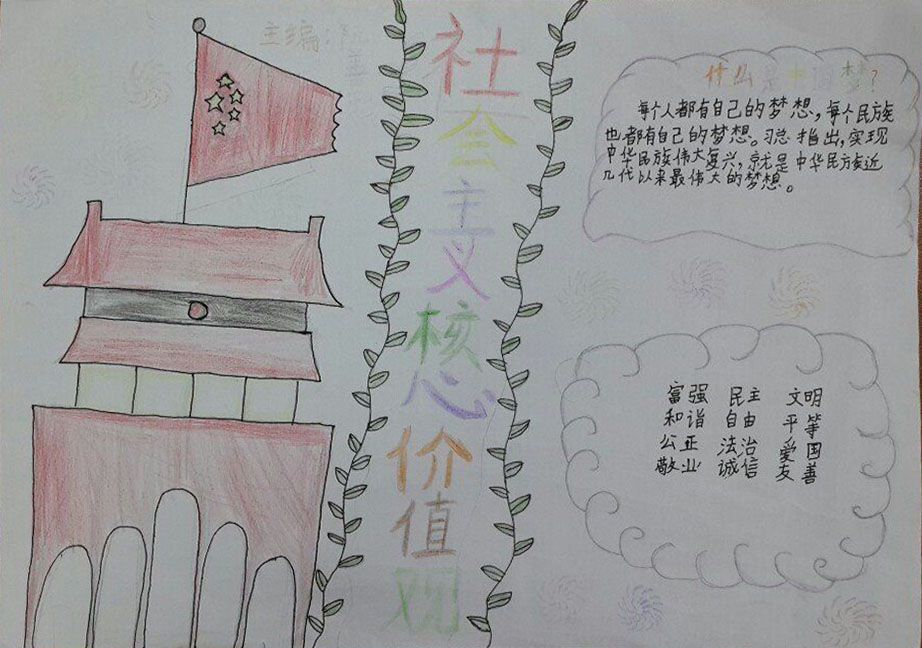 主编:
社会主义核心价值观
什么是中国梦?
每个人都有自己的梦想,每个民族
也都有自己的梦想。习总指出,实现
中华民族伟大复兴,就是中华民族近
几代以来最伟大的梦想。
富强 民主 文明
和谐 自由 平等
公亚 法治 爱国
敬业 诚信 友善